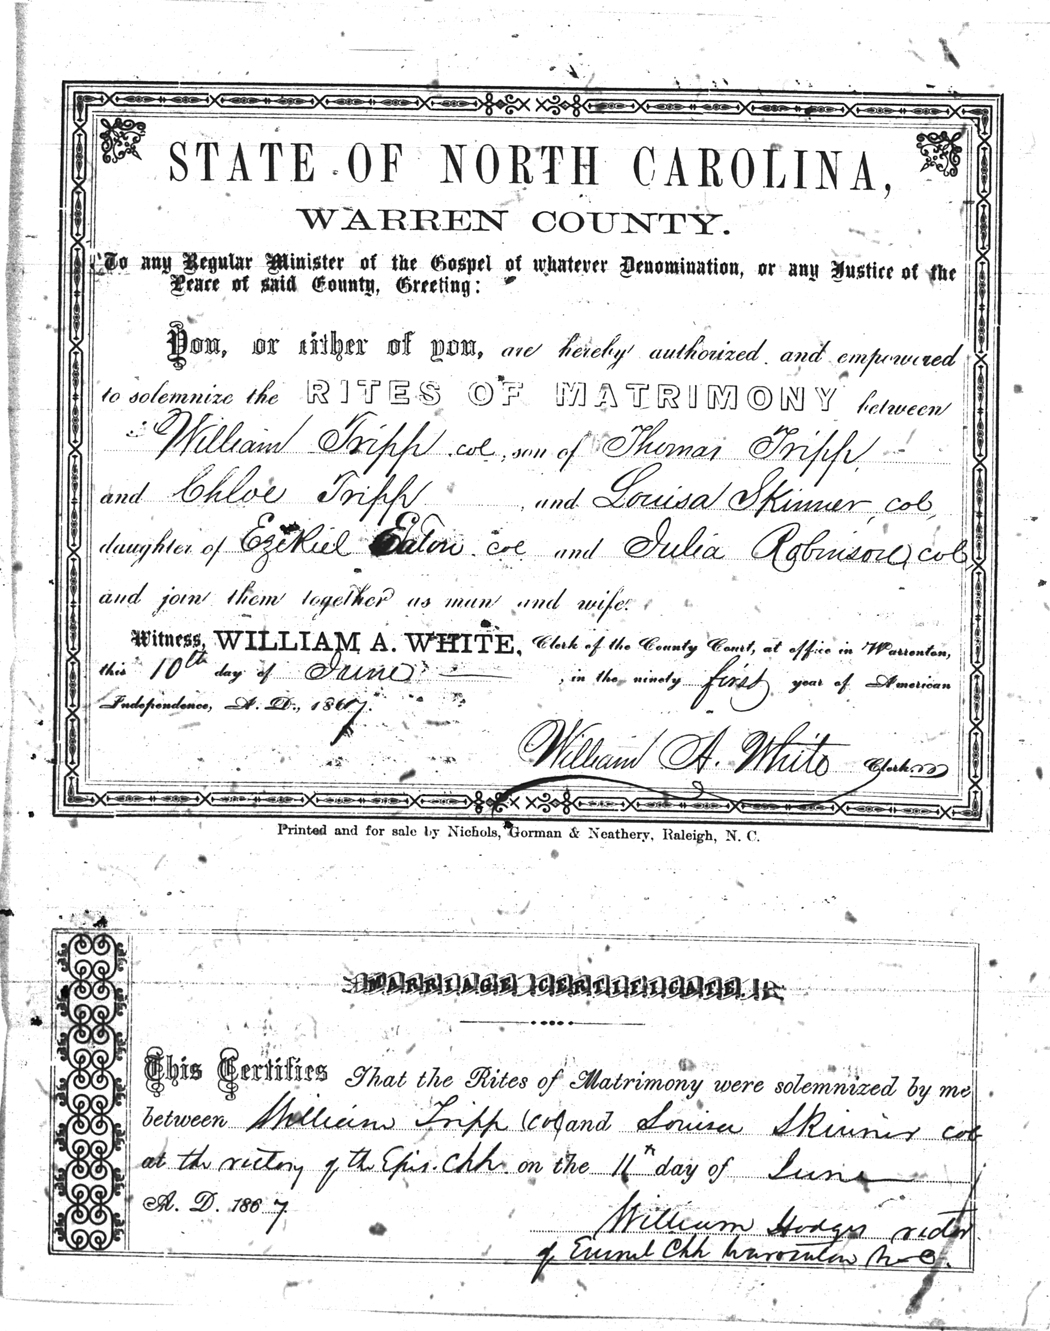 STATE OF NORTH CAROLINA,
WARREN COUNTY.
To any Regular Minister of the Gospel of whatever Denomination, or any Justice of the
Peace of said County, Greeting:
You, or either of you, are hereby authorized and empowered
to solemnize the RITES OF MATRIMONY between
William Tripp col, son of Thomas Tripp,
and Chloe Tripp, and Louisa Skinner, col,
daughter of Ezekiel Eaton col and Julia Robinson, col
and join them together as man and wife.
Witness, WILLIAM A. WHITE, Clerk of the County Court, at office in Warrenton,
this 10th day of June, in the ninety first year of American
Independence, A. D., 1867.
William A. White Clerk.
Printed and for sale by Nichols, Gorman & Neathery, Raleigh, N. C.
MARRIAGE CERTIFICATE.
This Certifies That the Rites of Matrimony were solemnized by me
between William Tripp (col) and Louisa Skinner col
at the rectory of the Epis. Chh. on the 11th day of June
A. D. 1867
William Hodges rector
of Emml Chh Warrenton N-C.